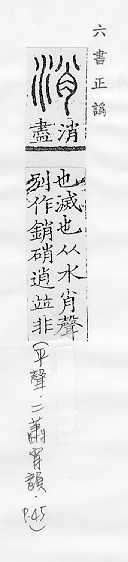 六書正譌
消
消
盡
也滅也从水肖聲
别作銷硝逍並非
(平聲.二蕭宵韻.P.45)